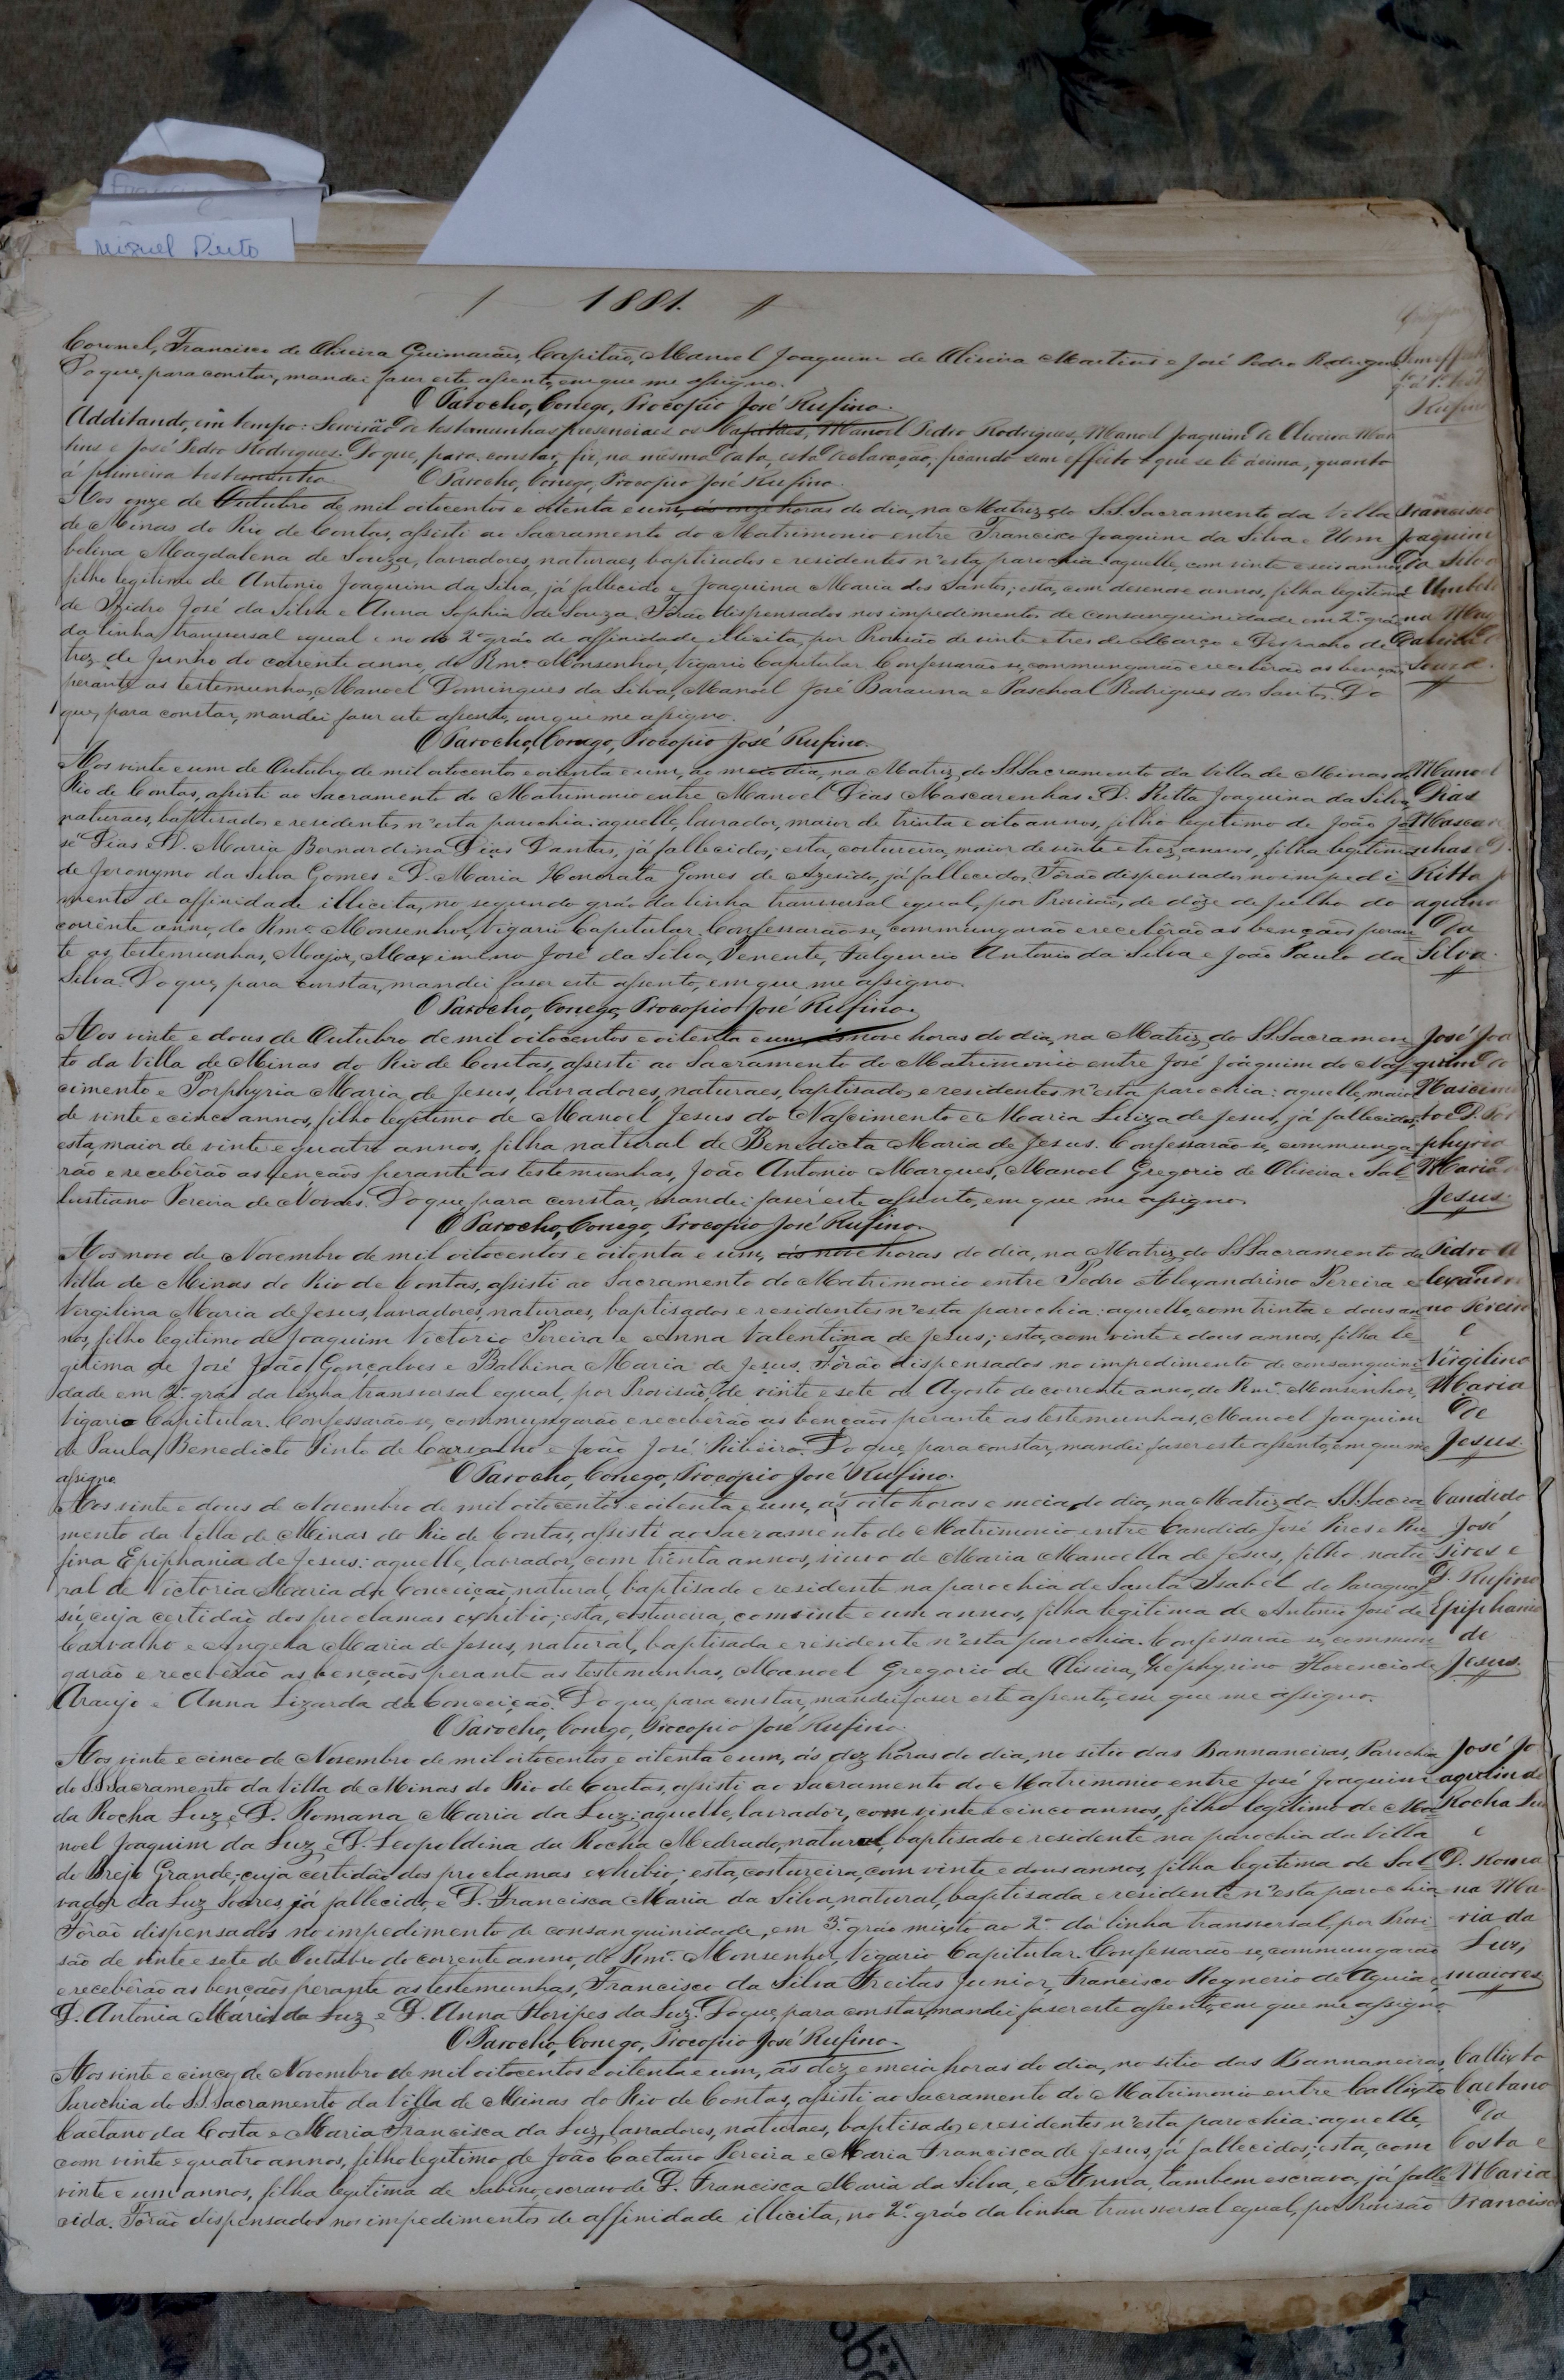 Miguel Pinto
1881.
Coronel, Francisco de Oliveira Guimarães, Capitão, Manoel Joaquim de Oliveira Martins e José Pedro Rodrigues
Do que, para constar, mandei faser este assento, em que me assigno.
O Parocho, Conego, Procopio José Rufino.
Rufino
Additando, em tempo: Servirão de testemunhas presenciaes os Capitães, Manoel Pedro Rodrigues, Manoel Joaquim de Oliveira Mar
tins e José Pedro Rodrigues. Do que, para constar, fiz, na mesma data, esta declaração; ficando sem effeito o que se lê ácima, quanto
á primeira testemunha. O Parocho, Conego, Procopio José Rufino.
Aos onze de Outubro de mil oitocentos e oitenta e um, ás onze horas do dia, na Matriz do S.S. Sacramento da Villa
de Minas do Rio de Contas, assisti ao Sacramento do Matrimonio entre Francisco Joaquim da Silva e Um
belina Magdalena de Souza, lavradores, naturaes, baptisados e residentes n'esta parochia: aquelle, com vinte e seis annos,
filho legitimo de Antonio Joaquim da Silva, já fallecido e Joaquina Maria dos Santos; esta, com desenove annos, filha legitima
de Isidro José da Silva e Anna Sophia de Souza. Fôrão dispensados nos impedimentos de consanguinidade em 2º gráo
da linha transversal egual e no do 2º gráo de affinidade illicita, por Provisão de vinte e tres de Março e Despacho de
trez de Junho do corrente anno, do Rmº Monsenhor, Vigario Capitular. Confessarão-se, commungarão e receberão as bençãos
perante as testemunhas, Manoel Domingues da Silva, Manoel José Barauna e Paschoal Rodrigues dos Santos. Do
que, para constar, mandei faser este assento, em que me assigno.
O Parocho, Conego, Procopio José Rufino.
Francisco
Joaquim
da Silva
e Umbeli
na Mag
dalena de
Souza.
Aos vinte e um de Outubro de mil oitocentos e oitenta e um, ao meio dia, na Matriz do S.S. Sacramento da Villa de Minas do
Rio de Contas, assisti ao Sacramento do Matrimonio entre Manoel Dias Mascarenhas e D. Ritta Joaquina da Silva,
naturaes, baptisados e residentes n'esta parochia: aquelle, lavrador, maior de trinta e oito annos, filho legitimo de João Jo
sé Dias e D. Maria Bernardina Dias Dantas, já fallecidos; esta, costureira, maior de vinte e trez annos, filha legitima
de Jeronymo da Silva Gomes e D. Maria Honorata Gomes de Azevedo, já fallecidos. Fôrão dispensados no impedi-
mento de affinidade illicita, no segundo gráo da linha transversal egual, por Provisão, de dôze de Julho do
corrente anno, do Rmº Monsenhor, Vigario Capitular. Confessarão-se, commungarão e receberão as bençãos peran
te as testemunhas, Major, Maximino José da Silva, Tenente, Fulgencio Antonio da Silva e João Paulo da
Silva. Do que, para constar, mandei faser este assento, em que me assigno.
O Parocho, Conego, Procopio José Rufino.
Manoel
Dias
Mascare
nhas e D.
Ritta Jo
aquina
da
Silva.
Aos vinte e dous de Outubro de mil oitocentos e oitenta e um, ás nove horas do dia, na Matriz do S.S. Sacramen
to da Villa de Minas do Rio de Contas, assisti ao Sacramento do Matrimonio entre José Joaquim do Nas
cimento e Porphyria Maria de Jesus, lavradores, naturaes, baptisados e residentes n'esta parochia: aquelle, maior
de vinte e cinco annos, filho legitimo de Manoel Jesus do Nascimento e Maria Luiza de Jesus, já fallecidos;
esta, maior de vinte e quatro annos, filha natural de Benedicta Maria de Jesus. Confessarão-se, communga
rão e receberão as bençãos perante as testemunhas, João Antonio Marques, Manoel Gregorio de Oliveira e Sal
lustiano Pereira de Novaes. Do que, para constar, mandei faser este assento, em que me assigno.
O Parocho, Conego, Procopio José Rufino.
José Joa
quim do
Nascimen
to e D. Por
phyria
Maria de
Jesus.
Aos nove de Novembro de mil oitocentos e oitenta e um, ás nove horas do dia, na Matriz do S.S. Sacramento da
Villa de Minas do Rio de Contas, assisti ao Sacramento do Matrimonio entre Pedro Alexandrino Pereira e
Vergilina Maria de Jesus, lavradores, naturaes, baptisados e residentes n'esta parochia: aquelle, com trinta e dous an
nos, filho legitimo de Joaquim Victorio Pereira e Anna Valentina de Jesus; esta, com vinte e dous annos, filha le
gitima de José João Gonçalves e Balbina Maria de Jesus. Fôrão dispensados no impedimento de consanguini
dade em 2º gráo da linha transversal egual, por Provisão, de vinte e sete de Agosto do corrente anno, do Rmº Monsenhor,
Vigario Capitular. Confessarão-se, commungarão e receberão as bençãos perante as testemunhas, Manoel Joaquim
de Paula, Benedicto Pinto de Carvalho e João José Ribeiro. Do que, para constar, mandei faser este assento, em que me
assigno. O Parocho, Conego, Procopio José Rufino.
Pedro A
lexandri
no Pereira
e
Virgilina
Maria
de
Jesus.
Aos vinte e dous de Novembro de mil oitocentos e oitenta e um, ás oito horas e meia do dia, na Matriz do S.S. Sacra
mento da Villa de Minas do Rio de Contas, assisti ao Sacramento do Matrimonio entre Candido José Pires e Ru
fina Epiphania de Jesus: aquelle, lavrador, com trinta annos, viuvo de Maria Manoella de Jesus, filho natu
ral de Victoria Maria da Conceição, natural, baptisado e residente na parochia de Santa Isabel do Paraguas
sú, cuja certidão dos proclamas exhibio; esta, costureira, com vinte e um annos, filha legitima de Antonio José de
Carvalho e Angela Maria de Jesus, natural, baptisada e residente n'esta parochia. Confessarão-se, commun
garão e receberão as bençãos perante as testemunhas, Manoel Gregorio de Oliveira, Zephyrino Florencio de
Araujo e Anna Lizarda da Conceição. Do que, para constar, mandei faser este assento, em que me assigno.
O Parocho, Conego, Procopio José Rufino.
Candido
José
Pires e
D. Rufina
Epiphania
de
Jesus.
Aos vinte e cinco de Novembro de mil oitocentos e oitenta e um, ás dez horas do dia, no sitio das Bannaneiras, Parochia
do S.S. Sacramento da Villa de Minas do Rio de Contas, assisti ao Sacramento do Matrimonio entre José Joaquim
da Rocha Luz e D. Romana Maria da Luz: aquelle, lavrador, com vinte e cinco annos, filho legitimo de Ma
noel Joaquim da Luz e D. Leopoldina da Rocha Medrado, natural, baptisado e residente na parochia da Villa
do Brejo Grande, cuja certidão dos proclamas exhibio; esta, costureira, com vinte e dous annos, filha legitima de Sal
vador da Luz Soares, já fallecido, e D. Francisca Maria da Silva, natural, baptisada e residente n'esta parochia.
Fôrão dispensados no impedimento de consanguinidade, em 3º gráo mixto ao 2º da linha transversal, por Provi
são de vinte e sete de Outubro do corrente anno, do Rmº Monsenhor, Vigario Capitular. Confessarão-se, commungarão
e receberão as bençãos perante as testemunhas, Francisco da Silva Freitas Junior, Francisco Regnerio de Aguiar,
D. Antonia Maria da Luz e D. Anna Floripes da Luz. Do que, para constar, mandei faser este assento, em que me assigno.
O Parocho, Conego, Procopio José Rufino.
José Jo
aquim da
Rocha Luz
e
D. Roma
na Ma
ria da
Luz,
maiores.
Aos vinte e cinco de Novembro de mil oitocentos e oitenta e um, ás dez e meia horas do dia, no sitio das Bannaneiras,
Parochia do S.S. Sacramento da Villa de Minas do Rio de Contas, assisti ao Sacramento do Matrimonio entre Callixto
Caetano da Costa e Maria Francisca da Luz, lavradores, naturaes, baptisados e residentes n'esta parochia: aquelle,
com vinte e quatro annos, filho legitimo de João Caetano Pereira e Maria Francisca de Jesus, já fallecidos; esta, com
vinte e um annos, filha legitima de Sabino, escravo de D. Francisca Maria da Silva, e Anna, tambem escrava, já falle
cida. Fôrão dispensados nos impedimentos de affinidade illicita, no 2º gráo da linha transversal egual, por Provisão
Callixto
Caetano
da
Costa e
Maria
Francisca